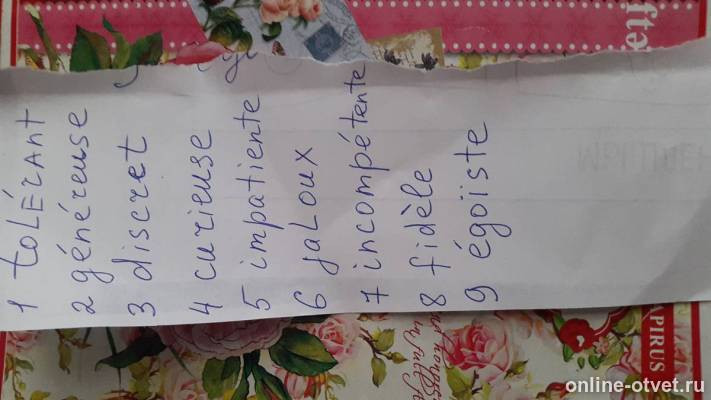 1 tolérant
2 généreuse
3 discret
4 curieuse
5 impatiente
6 jaloux
7 incompétente
8 fidèle
9 égoïste
PIRUS
online-otvet.ru